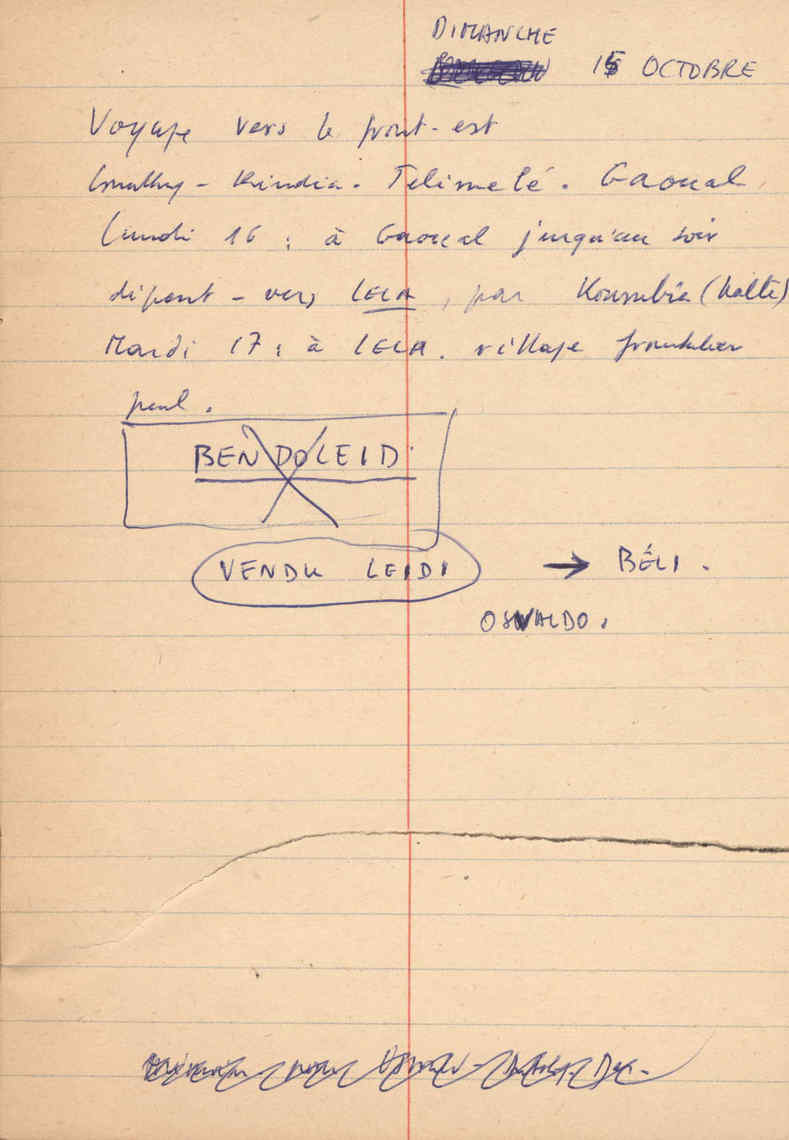 DIMANCHE
15 OCTOBRE
Voyage vers le front-est
Conakry - Kindia. Telimelé. Gaoual.
Lundi 16 : à Gaoual jusqu'au soir
départ - vers LELA, par Koumbia (halte)
Mardi 17 : à LELA. village frontalier
peul.
BENDOLEIDI
VENDU LEIDI → BÉLI.
OSWALDO.